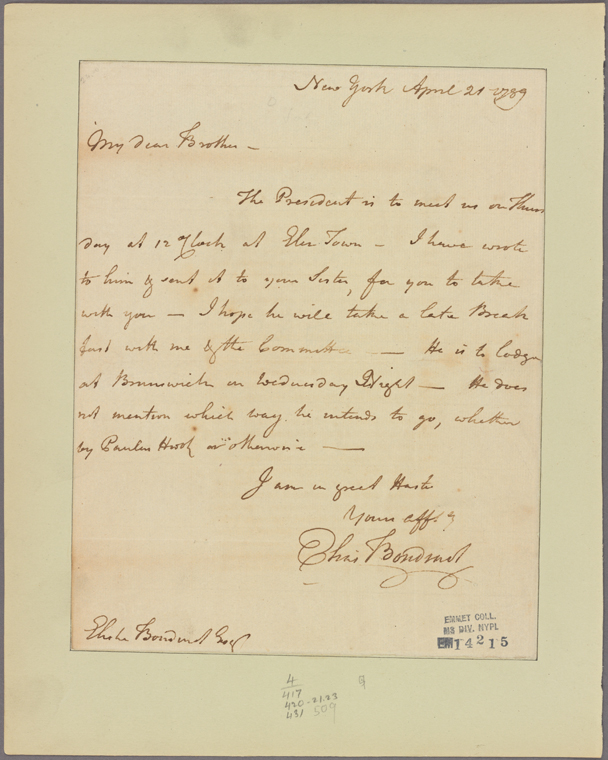 New York April 21 1789
My dear Brother –
The President is to meet us on Thurs
day at 12 oClock at Eliz. Town – I have wrote
to him & sent it to your Sister, for you to take
with you – I hope he will take a late Break
fast with me & the Committee – He is to lodge
at Brunswick on Wednesday Night – He does
not mention which way he intends to go, whether
by Paulus Hook or otherwise –
I am in great Haste
Yours affy
Elias Boudinot
Elisha Boudinot Esq
EMMET COLL.
MS DIV. NYPL
EM 14215
4
417
420-21.23
431 509